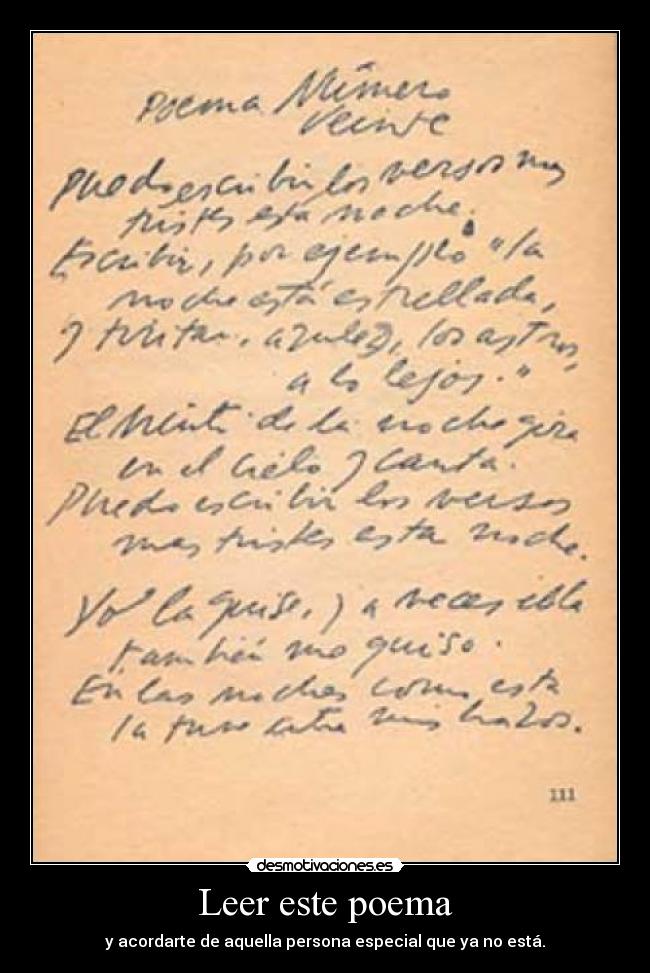 Poema Número
Veinte
Puedo escribir los versos mas
tristes esta noche.
Escribir, por ejemplo: "la
noche está estrellada,
y tiritan, azules, los astros,
a lo lejos."
El viento de la noche gira
en el cielo y canta.
Puedo escribir los versos
mas tristes esta noche.
Yo la quise, y a veces ella
también me quiso.
En las noches como esta
la tuve entre mis brazos.
111
desmotivaciones.es
Leer este poema
y acordarte de aquella persona especial que ya no está.